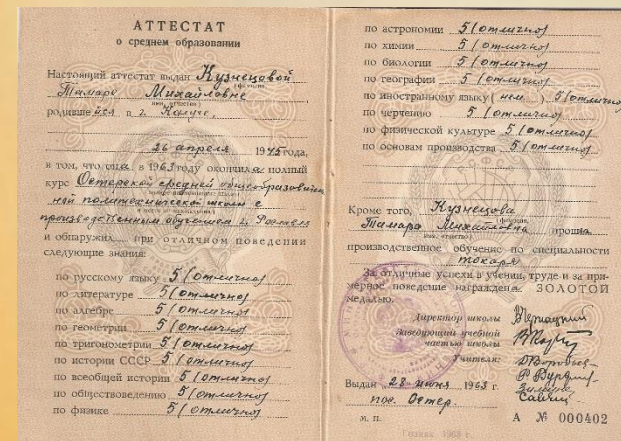 АТТЕСТАТ
о среднем образовании
Настоящий аттестат выдан Кузнецовой
Тамаре Михайловне
родившейся в г. Калуге,
26 апреля 1945 года,
в том, что она в 1963 году окончила полный
курс Остерской средней общеобразователь
ной политехнической школы с
производственным обучением г. Рославля
и обнаружила при отличном поведении
следующие знания:
по русскому языку 5 (отлично)
по литературе 5 (отлично)
по алгебре 5 (отлично)
по геометрии 5 (отлично)
по тригонометрии 5 (отлично)
по истории СССР 5 (отлично)
по всеобщей истории 5 (отлично)
по обществоведению 5 (отлично)
по физике 5 (отлично)
по астрономии 5 (отлично)
по химии 5 (отлично)
по биологии 5 (отлично)
по географии 5 (отлично)
по иностранному языку (нем) 5 (отлично)
по черчению 5 (отлично)
по физической культуре 5 (отлично)
по основам производства 5 (отлично)
Кроме того, Кузнецова
Тамара Михайловна прошла
производственное обучение по специальности
токаря
За отличные успехи в учении, труде и за при-
мерное поведение награждена ЗОЛОТОЙ
медалью.
Директор школы
Заведующий учебной
частью школы
Учителя:
Выдан 28 июня 1963 г.
пос. Остер
М. П.
А № 000402